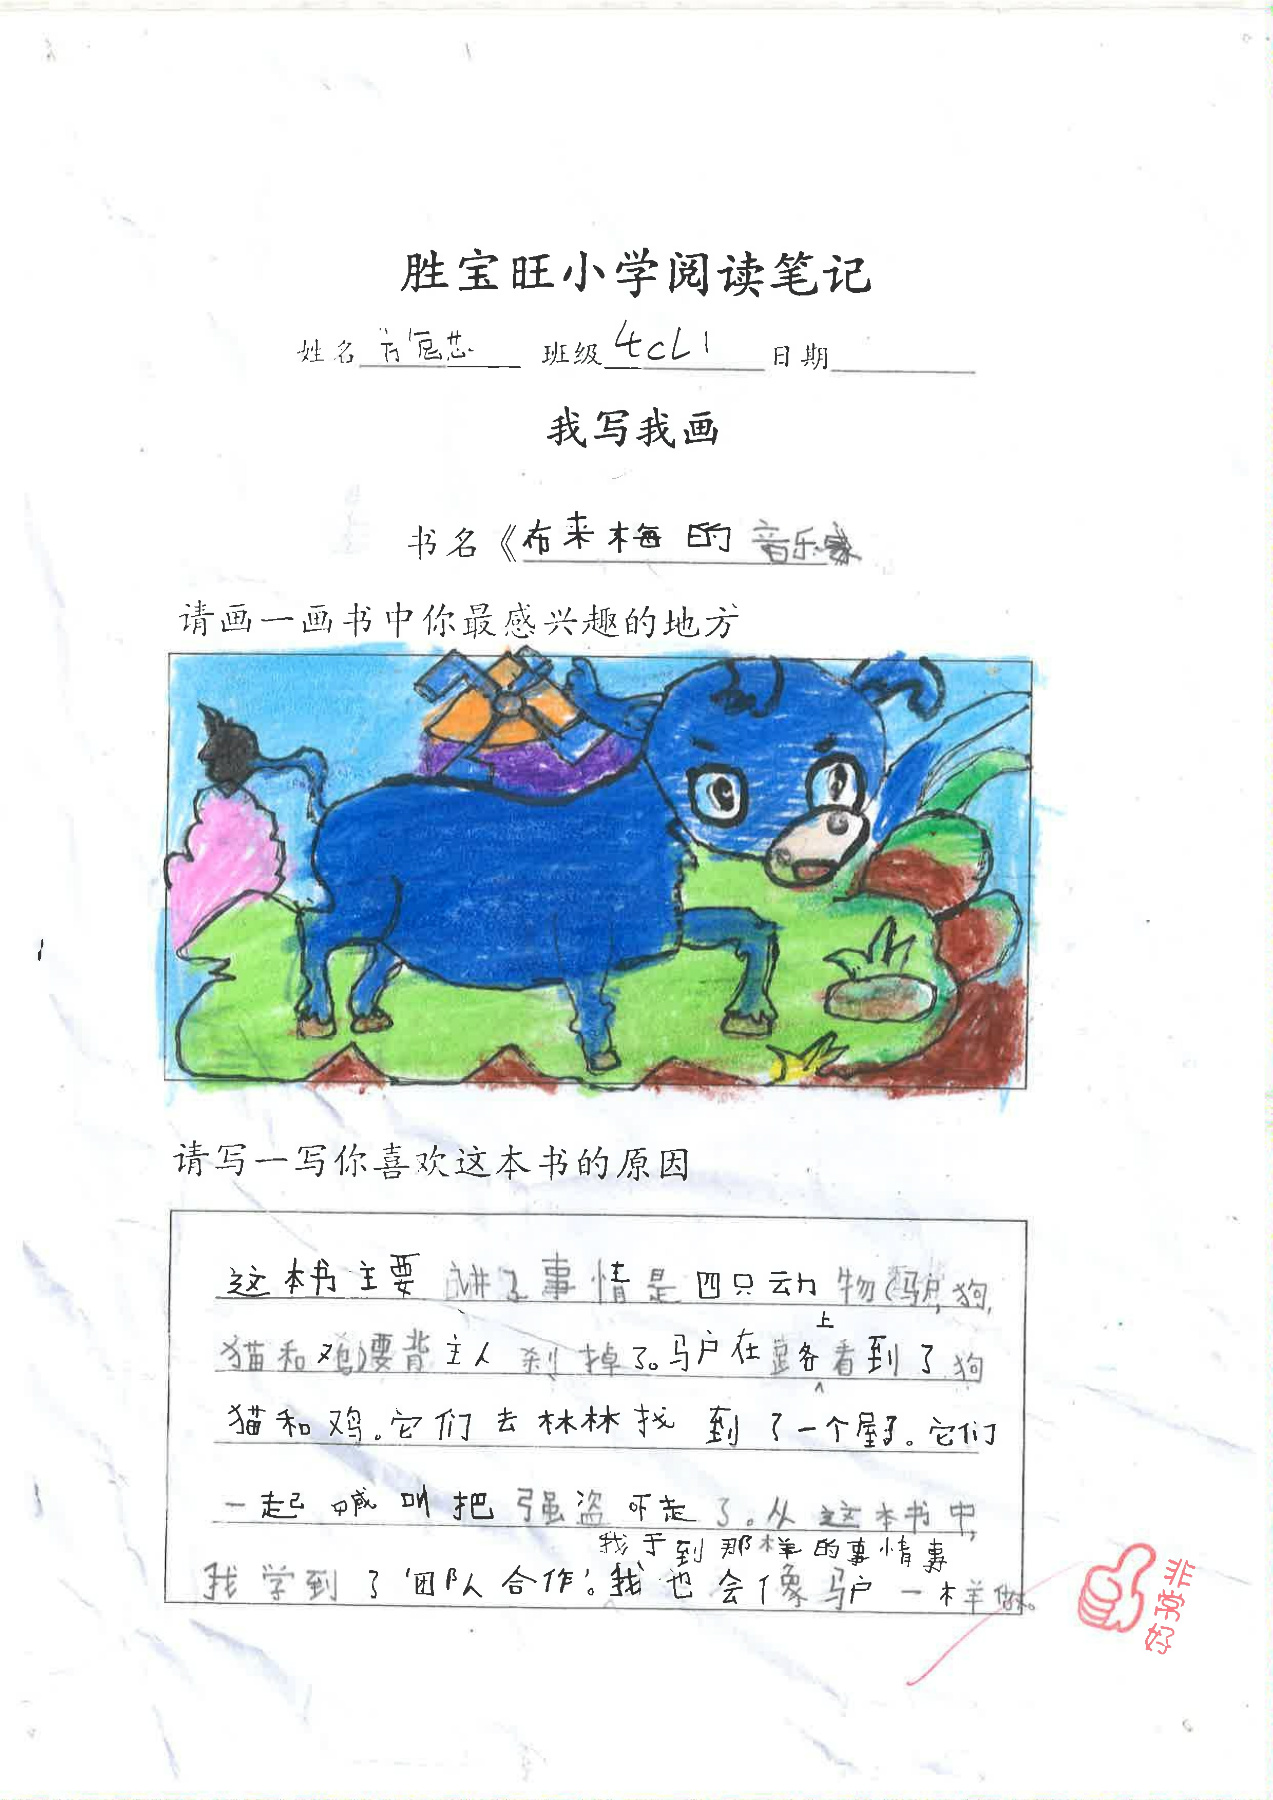 胜宝旺小学阅读笔记
姓名 班级 4CL1 日期
我写我画
书名《布来梅的音乐家
请画一画书中你最感兴趣的地方
请写一写你喜欢这本书的原因
这本书主要讲了事情是四只动物(马户,狗,
猫和鸡)要背主人刹掉了。马户在路上看到了狗
猫和鸡。它们去林林找到了一个屋子。它们
一起喊叫把强盗吓走了。从这本书中,
我于到那样的事情事
我学到了'团队合作'。我也会像马户一样做。
非常好